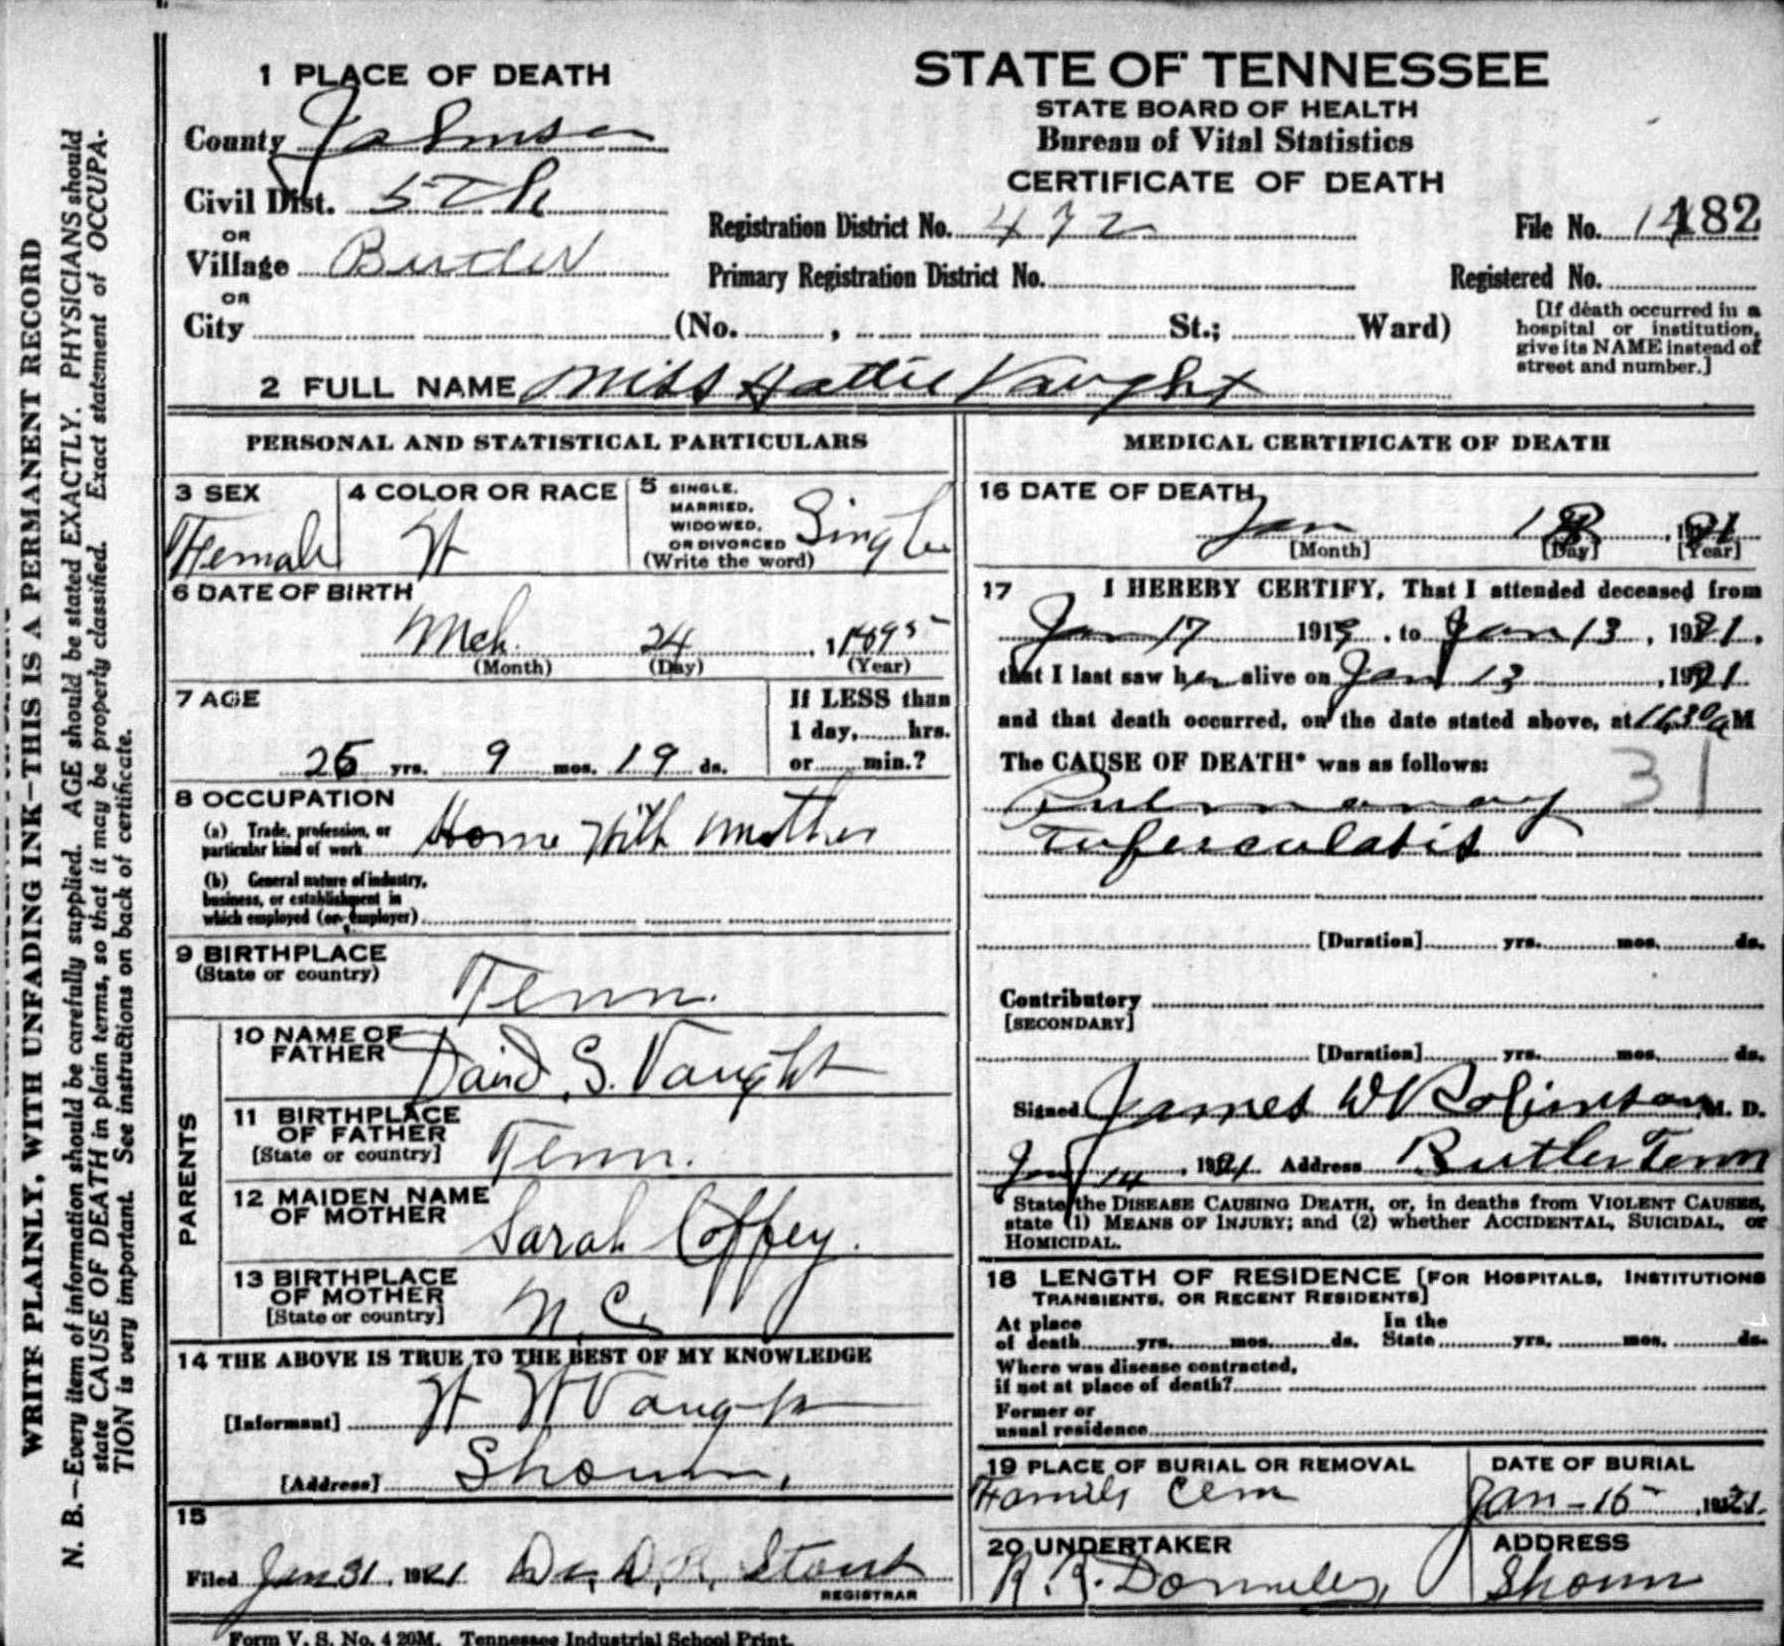 1 PLACE OF DEATH
County Johnson
Civil Dist. 5th
OR
Village Butler
OR
City (No. , St.; Ward)
STATE OF TENNESSEE
STATE BOARD OF HEALTH
Bureau of Vital Statistics
CERTIFICATE OF DEATH
Registration District No. 472
File No. 182
Primary Registration District No.
Registered No.
[If death occurred in a
hospital or institution,
give its NAME instead of
street and number.]
2 FULL NAME Miss Hattie Vaught
PERSONAL AND STATISTICAL PARTICULARS
3 SEX
Female
4 COLOR OR RACE
W
5 SINGLE,
MARRIED,
WIDOWED,
OR DIVORCED
(Write the word)
Single
6 DATE OF BIRTH
Mch. 24, 1895
(Month) (Day) (Year)
7 AGE
25 yrs. 9 mos. 19 ds.
If LESS than
1 day, hrs.
or min.?
8 OCCUPATION
(a) Trade, profession, or
particular kind of work Home With Mother
(b) General nature of industry,
business, or establishment in
which employed (or employer)
9 BIRTHPLACE
(State or country)
Tenn.
PARENTS
10 NAME OF
FATHER David S. Vaught
11 BIRTHPLACE
OF FATHER
[State or country] Tenn.
12 MAIDEN NAME
OF MOTHER Sarah Coffey.
13 BIRTHPLACE
OF MOTHER
[State or country] N.C.
14 THE ABOVE IS TRUE TO THE BEST OF MY KNOWLEDGE
[Informant] W W Vaught
[Address] Shoun,
15
Filed Jan 31, 1921 Dr. D. R. Stout
REGISTRAR
MEDICAL CERTIFICATE OF DEATH
16 DATE OF DEATH
Jan 13, 1921
[Month] [Day] [Year]
17 I HEREBY CERTIFY, That I attended deceased from
Jan 17 1919, to Jan 13, 1921,
that I last saw her alive on Jan 13, 1921
and that death occurred, on the date stated above, at M
The CAUSE OF DEATH* was as follows:
31
Pulmonary
Tuberculosis
[Duration] yrs. mos. ds.
Contributory
[SECONDARY]
[Duration] yrs. mos. ds.
Signed James W Robinson M. D.
Jan 14, 1921 Address Butler Tenn
*State the DISEASE CAUSING DEATH, or, in deaths from VIOLENT CAUSES,
state (1) MEANS OF INJURY; and (2) whether ACCIDENTAL, SUICIDAL, or
HOMICIDAL.
18 LENGTH OF RESIDENCE [FOR HOSPITALS, INSTITUTIONS
TRANSIENTS, OR RECENT RESIDENTS]
At place
of death yrs. mos. ds.
In the
State yrs. mos. ds.
Where was disease contracted,
if not at place of death?
Former or
usual residence
19 PLACE OF BURIAL OR REMOVAL
Family Cem
DATE OF BURIAL
Jan - 15, 1921
20 UNDERTAKER
R. R. Donnelly,
ADDRESS
Shoun
Form V. S. No. 4 20M. Tennessee Industrial School Print.
WRITE PLAINLY, WITH UNFADING INK—THIS IS A PERMANENT RECORD
N. B.—Every item of information should be carefully supplied. AGE should be stated EXACTLY. PHYSICIANS should
state CAUSE OF DEATH in plain terms, so that it may be properly classified. Exact statement of OCCUPA-
TION is very important. See instructions on back of certificate.